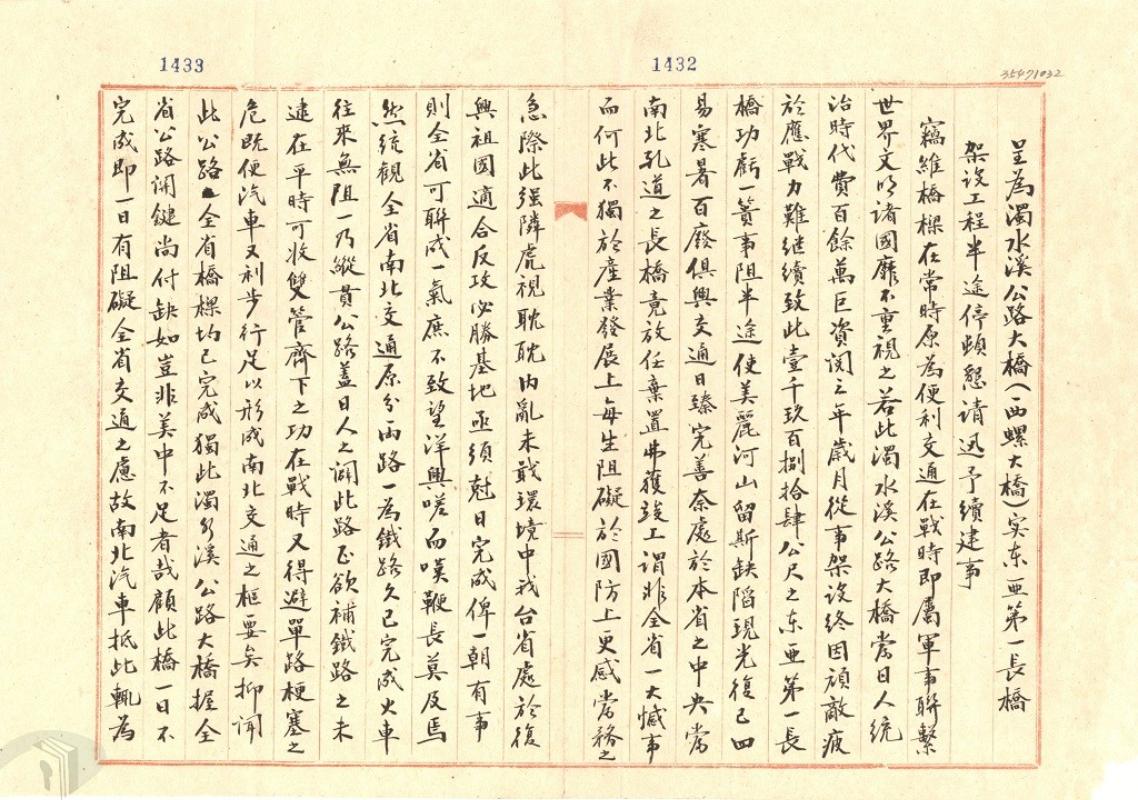 1433
1432
35471032
呈為濁水溪公路大橋(西螺大橋)实东亚第一長橋
架設工程半途停頓懇請迅予續建事
竊維橋樑在常時原為便利交通在戰時即屬軍事聯繫
世界文明諸國靡不重視之若此濁水溪公路大橋當日人統
治時代費百餘萬巨資閱三年歲月從事架設終因頑敵疲
於應戰力難继续致此壹千玖百捌拾肆公尺之东亚第一長
橋功虧一簣事阻半途使美麗河山留斯缺陷現光復已四
易寒暑百廢俱興交通日臻完善奈處於本省之中央當
南北孔道之長橋竟放任棄置弗獲竣工謂非全省一大憾事
而何此不獨於產業發展上每生阻礙於國防上更感當務之
急際此强隣虎視耽耽内亂未戢環境中我台省處於復
興祖國適合反攻必勝基地亟須尅日完成俾一朝有事
則全省可聯成一氣庶不致望洋興嗟而嘆鞭長莫及焉
然統觀全省南北交通原分兩路一為鐵路久已完成火車
往來無阻一乃縱貫公路蓋日人之闢此路正欲補鐵路之未
逮在平時可收雙管齊下之功在戰時又得避單路梗塞之
危既便汽車又利步行足以形成南北交通之樞要矣抑闻
此公路全省橋樑均已完成獨此濁水溪公路大橋握全
省公路關鍵尚付缺如豈非美中不足者哉顧此橋一日不
完成即一日有阻礙全省交通之慮故南北汽車抵此輒為